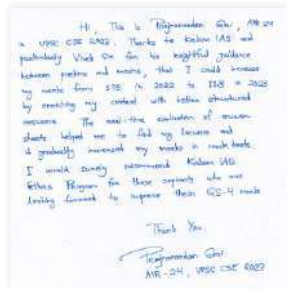 Hi, This is Prajnanandan Giri, AIR-24
in UPSC CSE 2023. Thanks to Kalam IAS and
particularly Vivek Sir for his insightful guidance
between prelims and mains, that I could increase
my marks from in 2022 to in 2023
by enriching my content with better structured
answers. The real-time evaluation of answer
sheets helped me to find my lacunae and
gradually increased my marks in mock tests.
I would surely recommend Kalam IAS
Ethics Program for those aspirants who are
looking forward to improve their GS-4 marks
Thank You.
Prajnanandan Giri
AIR-24, UPSC CSE 2023